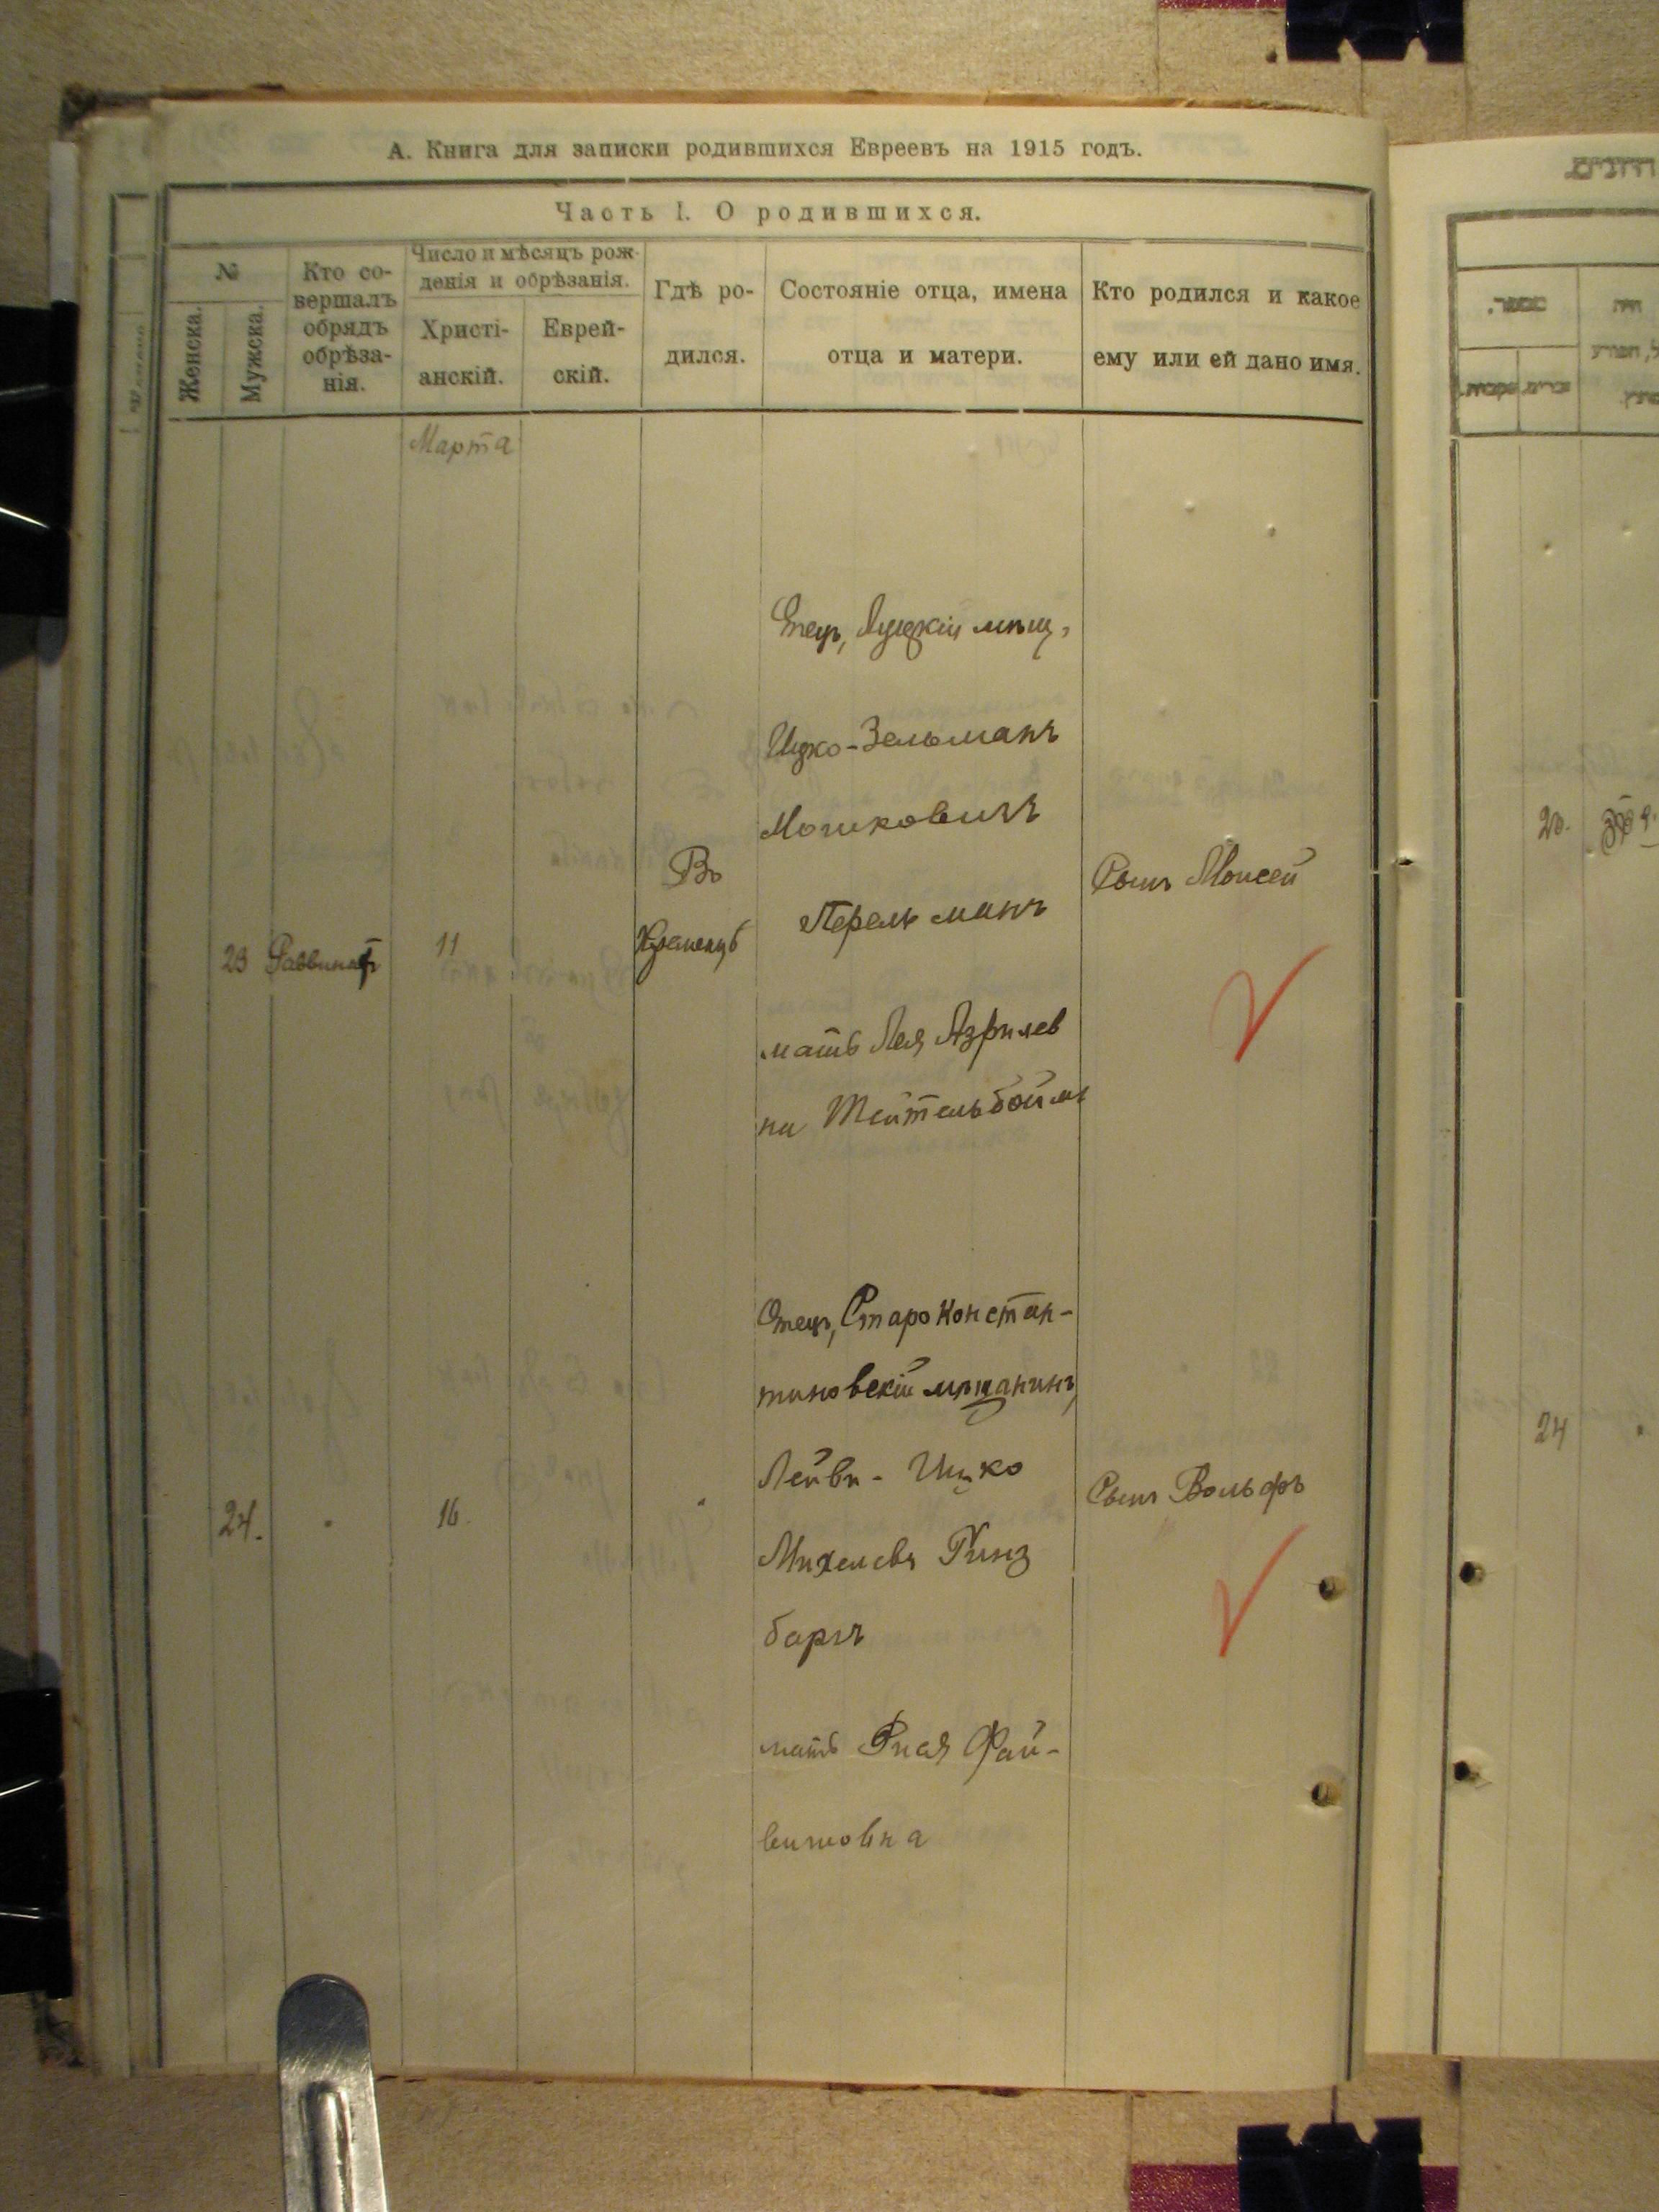 А. Книга для записки родившихся Евреевъ на 1915 годъ.
Часть I. О родившихся.
№
Женска.
Мужска.
Кто со-
вершалъ
обрядъ
обрѣза-
нія.
Число и мѣсяцъ рож-
денія и обрѣзанія.
Христі-
анскій.
Еврей-
скій.
Гдѣ ро-
дился.
Состояніе отца, имена
отца и матери.
Кто родился и какое
ему или ей дано имя.
Марта
23 Раввинатъ 11
Въ
Кременцѣ
Отецъ, Луцкій мѣщ.
Ицко-Зельманъ
Мошковичъ
Перельманъ
мать Лея Азрилев
на Тейтельбоймъ
Сынъ Моисей
24. 16.
Отецъ, Староконстан-
тиновскій мѣщанинъ,
Лейви-Ицко
Михелевъ Гинз
бургъ
мать Фай-
вишовна
Сынъ Вольфъ
24